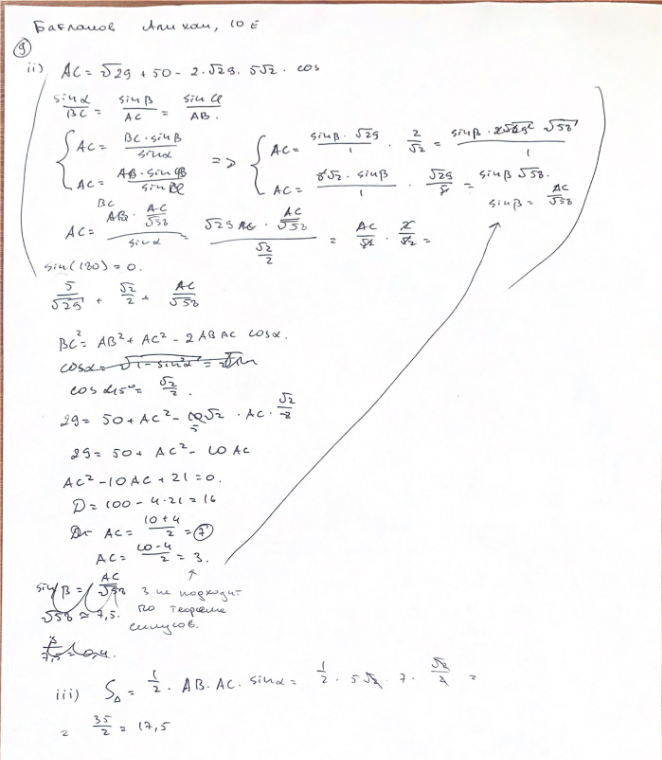 Багланов Алихан, 10 E
9
ii) AC = √29 + 50 - 2·√29·5√2·cos
sinα/BC = sinβ/AC = sin φ/AB.
{ AC = BC·sinβ/sinα => { AC = sinβ·√29/1 · 2/√2 = sinβ·√58/1
AC = AB·sinβ/sin φ AC = 5√2·sinβ/1 · √29/5 = sinβ √58.
sinβ = AC/√58
AC = BC · AC/√58 / sinα = √29 · AC/√58 / √2/2 = AC/√2 · 2/√2 =
sin(180) = 0.
5/√29 + √2/2 + AC/√58
BC² = AB² + AC² - 2 AB AC cosα.
cosα = √1 - sin²α =
cos 45° = √2/2.
29 = 50 + AC² - 10√2 · AC · √2/2
29 = 50 + AC² - 10 AC
AC² - 10 AC + 21 = 0.
D = 100 - 4·21 = 16
AC = 10+4/2 = 7
AC = 10-4/2 = 3.
sinβ = AC/√58 3 не подходит
√58 ≈ 7,5. по теореме
синусов.
iii) S△ = 1/2 · AB·AC·sinα = 1/2 · 5√2 · 7 · √2/2 =
= 35/2 = 17,5